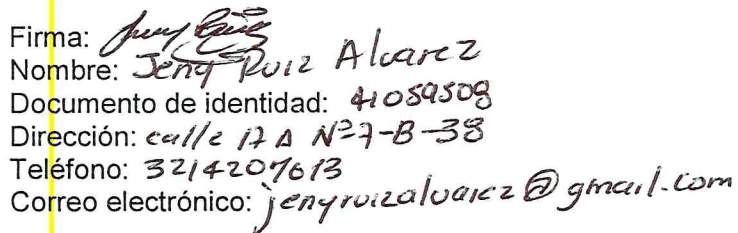 Firma: Jeny Ruiz
Nombre: Jeny Ruiz Alvarez
Documento de identidad: 41059508
Dirección: calle 17 A Nº7-B-38
Teléfono: 3214207613
Correo electrónico: jenyruizalvarez@gmail.com